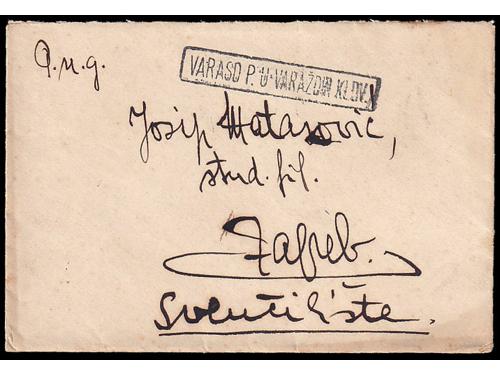 P.n.g.
VARASD P. U. VARAŽDIN KLOV.
Josip Matasović,
stud. fil.
Zagreb.
Sveučilište.